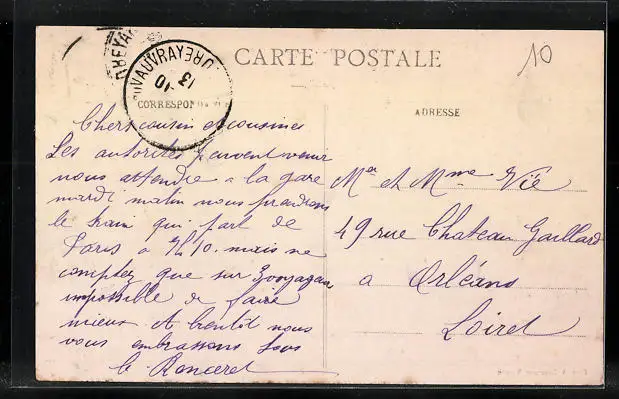 CARTE POSTALE
10
VAUVRAY
13 10
CORRESPOND
ADRESSE
Chers cousin et cousines
Les autorités peuvent venir
nous attendre a la gare
mardi matin nous prendrons
le train qui part de
Paris a 7h10. mais ne
comptez que sur
impossible de faire
mieux et bientôt nous
vous embrassons tous
Mr et Mme Vié
49 rue Chateau Gaillard
a Orléans
Loiret